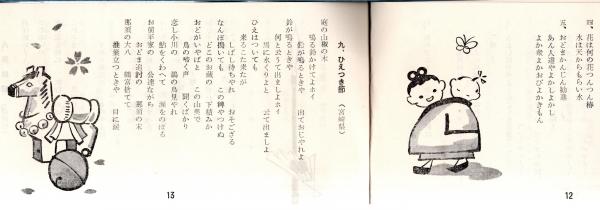 四、花は何の花つんつん椿
水は天からもらい水
五、おどまかんじん勧進
あん人達やよかしよかし
よか帯よかおびよかきもん
12
九、ひえつき節 （宮崎県）
庭の山椒の木
鳴る鈴かけてヨーホイ
鈴が鳴るときや
出ておじやれよ
鈴が鳴るときや
何と云うて出ましよヨーホイ
馬に水くりよと
云て出ましよ
ひえはついても
来るこた来たが
しばし待ちやれ
おそござる
なんぼ搗いても
この稗やつけぬ
どこのお蔵の
下積みか
おどがいやばよ
この山奥で
鳥の啼く声
聞くばかり
恋し小川の
鵜の鳥見やれ
鮎をくわえて
瀬をのぼる
お前平家の
公達ながら
おどま追討の
那須の末
那須の大八
鶴富捨てて
椎葉立つときや
目に涙
13